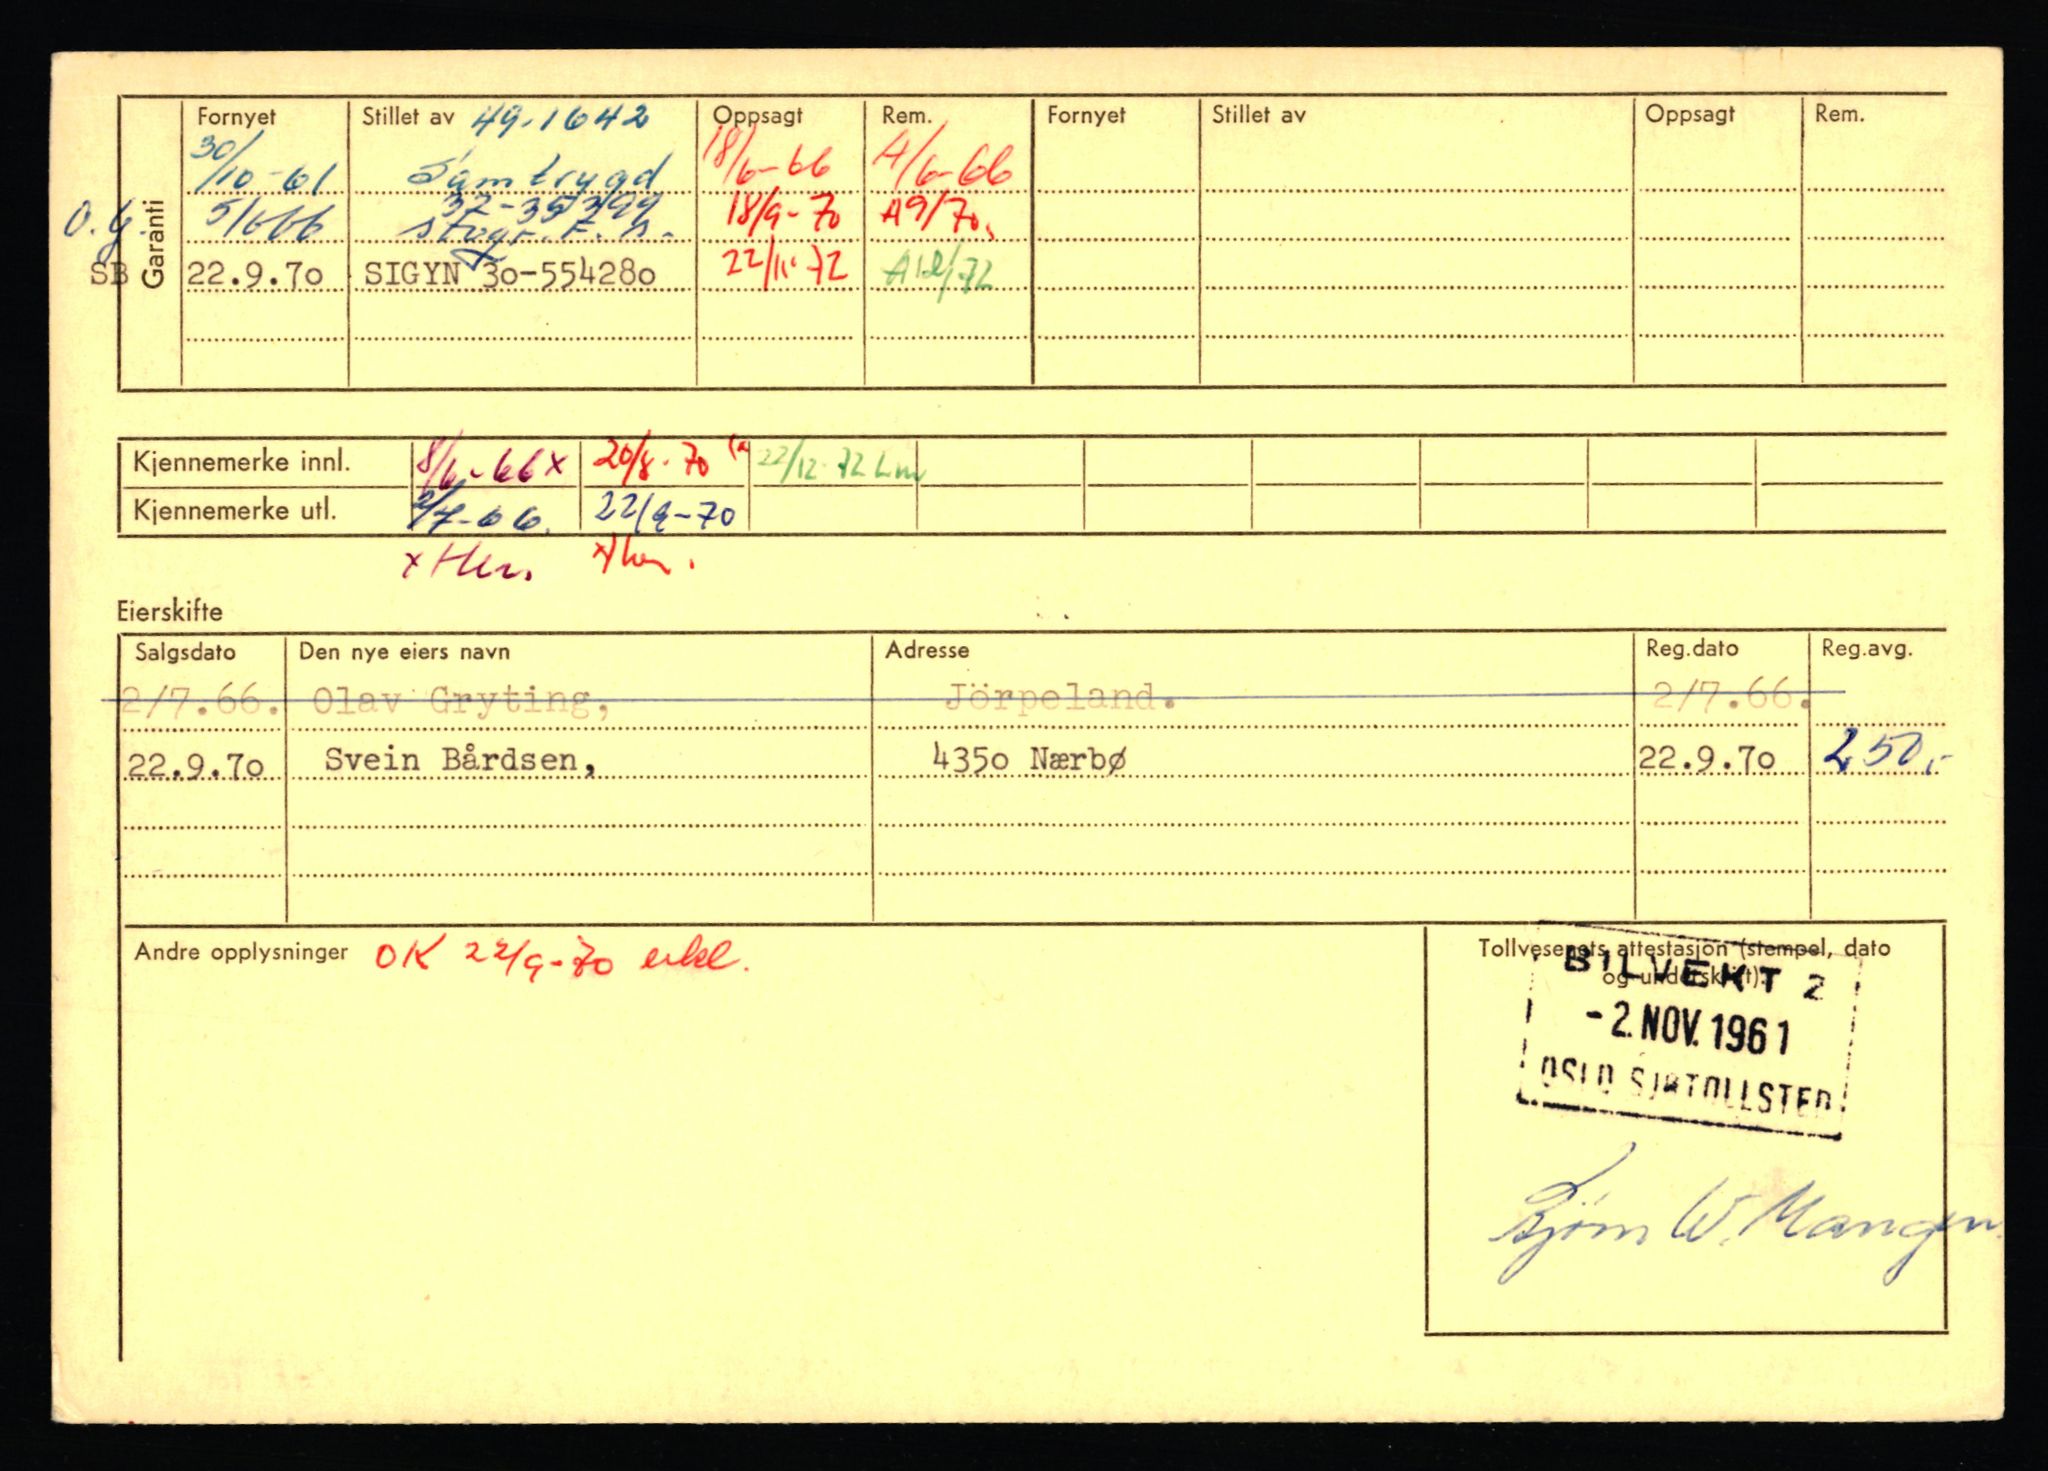 Fornyet Stillet av 49-1642 Oppsagt Rem. Fornyet Stillet av Oppsagt Rem.
30/10-61 Samtrygd 18/6-66 A/6-66
O.G. 5/666 18/9-70 A9/70.
SB 22.9.70 SIGYN 30-554280 22/11-72 A12/72
Garanti
Kjennemerke innl. 8/6-66x 20/8-70 22/12-72 Lm
Kjennemerke utl. 2/7-66. 22/9-70
Eierskifte
Salgsdato Den nye eiers navn Adresse Reg.dato Reg.avg.
2/7.66. Olav Gryting, Jörpeland. 2/7.66.
22.9.70 Svein Bårdsen, 4350 Nærbø 22.9.70 250,-
Andre opplysninger OK 22/9-70 erkl.
Tollvesenets attestasjon (stempel, dato
og underskrift).
BILVEKT 2
-2. NOV. 1961
OSLO SJØTOLLSTED
Bjørn W. Mangen